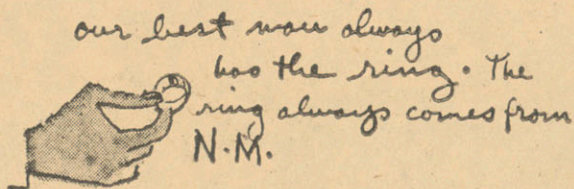 our best man always
has the ring. The
ring always comes from
N.M.